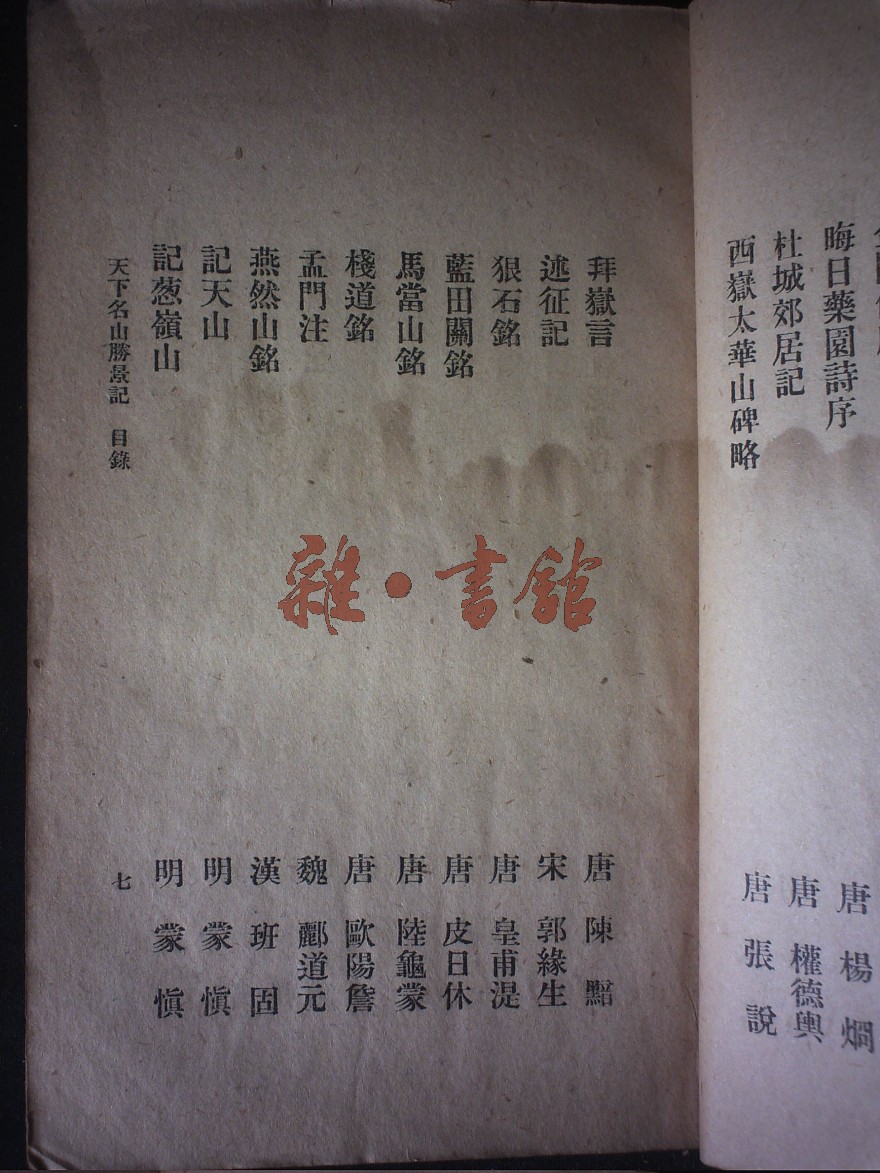 晦日藥園詩序　唐　楊烱
杜城郊居記　唐　權德輿
西嶽太華山碑略　唐　張說
拜嶽言　唐　陳黯
述征記　宋　郭緣生
狠石銘　唐　皇甫湜
藍田關銘　唐　皮日休
馬當山銘　唐　陸龜蒙
棧道銘　唐　歐陽詹
孟門注　魏　酈道元
燕然山銘　漢　班固
記天山　明　蒙愼
記葱嶺山　明　蒙愼
天下名山勝景記　目錄　七
雜·書館